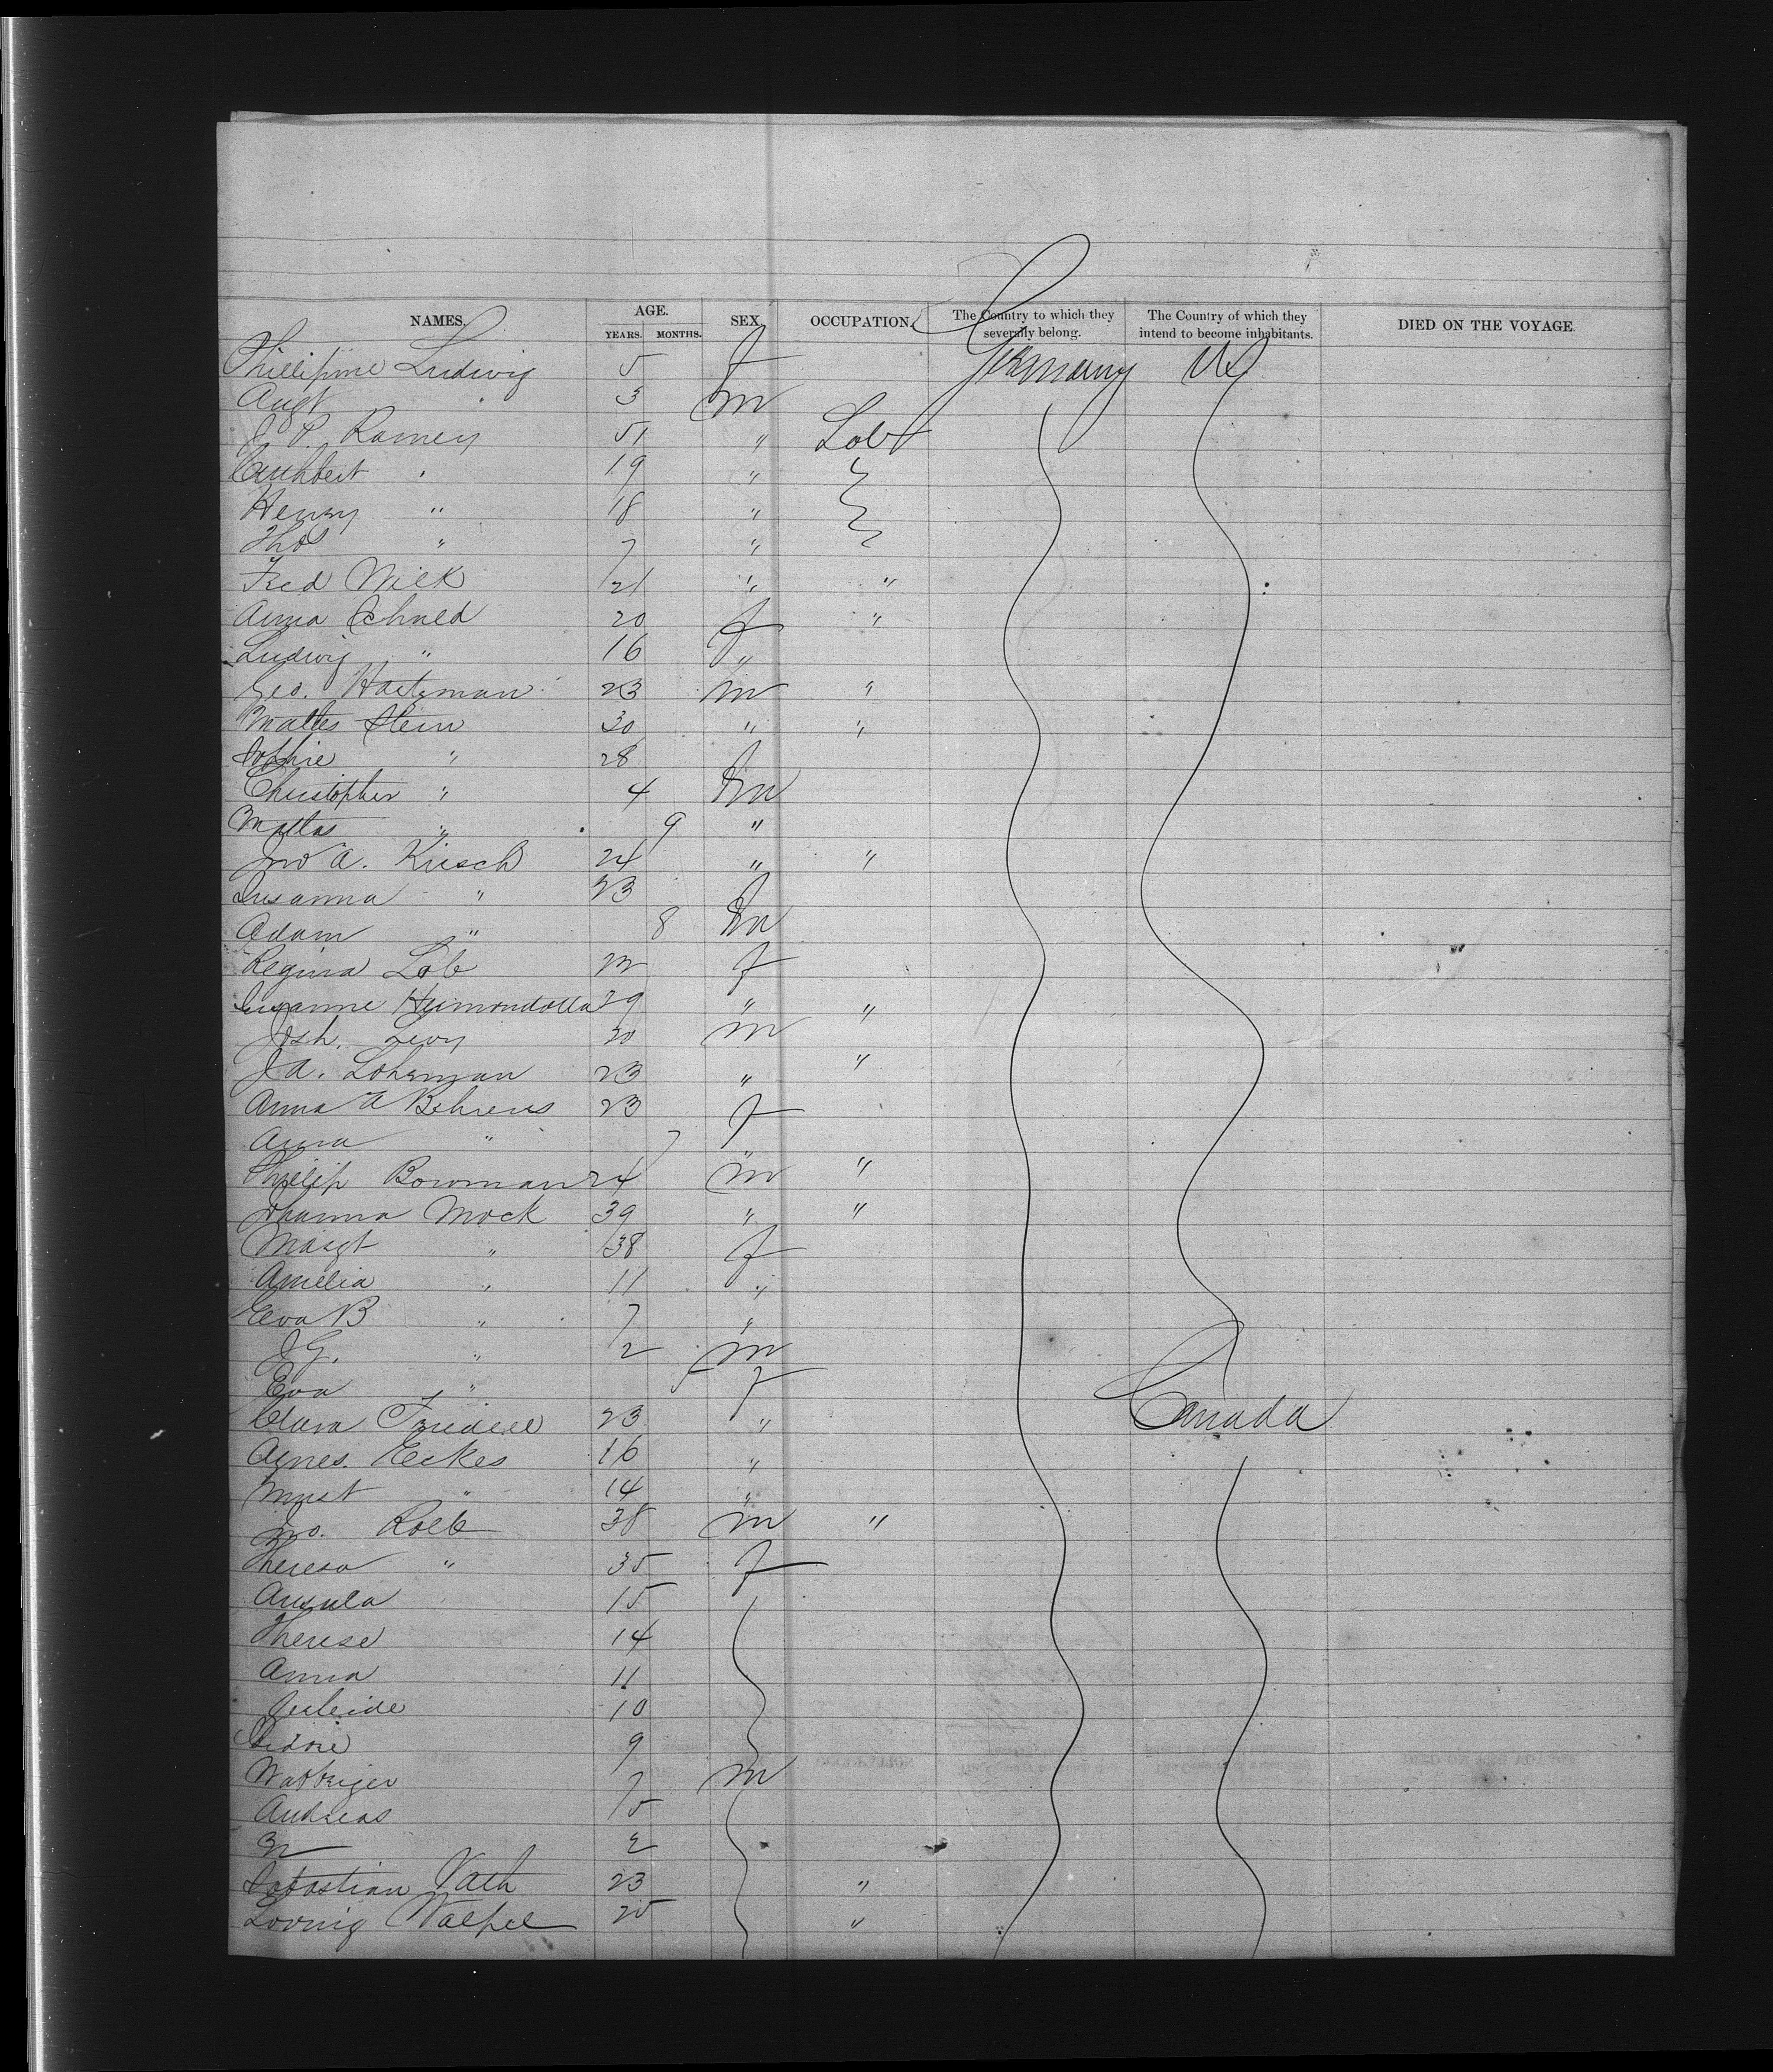 NAMES. AGE. SEX. OCCUPATION. The Country to which they severally belong. The Country of which they intend to become inhabitants. DIED ON THE VOYAGE.
YEARS. MONTHS.
Phillipine Ludwig 5 f Germany US
Augt 3 m
J. P. Ramey 51 " Lab
Cuthbert " 19 "
Henry " 18 "
Thos " 7 "
Fred Wilk 21 " "
Anna Schned 20 f "
Ludwig " 16 "
Geo. Hartzman 23 m "
Mattes Stein 30 " "
Sophie " 28 f
Christopher " 4 m
Mattas " 9 "
Jno A. Kirsch 24 " "
Susanna " 23 f
Adam " 8 m
Regina Lob 22 f
Susanne 29 " "
Josh. Levy 20 m
J A. Lohrman 23 " "
Anna A Behrens 23 f
Anna " 7 "
Philip Bowman 24 m "
Johanna Mock 39 " "
Margt " 38 f
Amelia " 11 "
Eva B " 7 "
J G. " 2 m
Eva " f
Clara 23 " Canada
Agnes Eckes 16 "
" 14 "
Jno. Kolb 38 m "
Theresa " 35 f
15
Therese 14
Anna 11
10
9
7 m
Andreas 5
2
Sebastian Vath 23 "
25 "